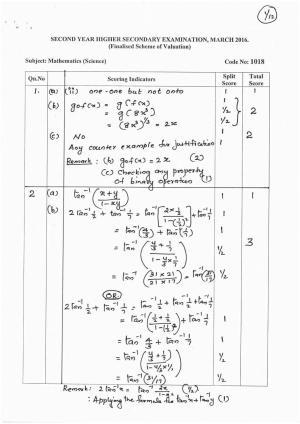 1/12
SECOND YEAR HIGHER SECONDARY EXAMINATION, MARCH 2016.
(Finalised Scheme of Valuation)
Subject: Mathematics (Science) Code No: 1018
Qn.No Scoring Indicators Split Score Total Score
1. (a) (ii) one-one but not onto 1 1
(b) gof(x) = g(f(x)) 1
= g(8x³) ½ 2
= (8x³)^(1/3) = 2x ½
(c) No 1
Any counter example for justification 1 2
Remark: (b) gof(x) = 2x (2)
(c) Checking any property
of binary operation (1)
2 (a) tan⁻¹((x+y)/(1-xy)) 1 1
(b) 2 tan⁻¹ ½ + tan⁻¹ 1/7 = tan⁻¹[(2×½)/(1-(½)²)] + tan⁻¹ 1/7 1
= tan⁻¹(4/3) + tan⁻¹(1/7) 1
= tan⁻¹((4/3 + 1/7)/(1 - 4/3 × 1/7)) ½ 3
= tan⁻¹((31×21)/(21×17)) = tan⁻¹(31/17) ½
OR
2 tan⁻¹ ½ + tan⁻¹ 1/7 = tan⁻¹ ½ + tan⁻¹ ½ + tan⁻¹ 1/7
= tan⁻¹((½ + ½)/(1-(½)²)) + tan⁻¹ 1/7 1
= tan⁻¹ 4/3 + tan⁻¹ 1/7 1
= tan⁻¹((4/3 + 1/7)/(1 - 4/3 × 1/7)) ½
= tan⁻¹(31/17) ½
Remark: 2 tan⁻¹x = tan⁻¹ 2x/(1-x²) (½)
: Applying the formula tan⁻¹x + tan⁻¹y (1)